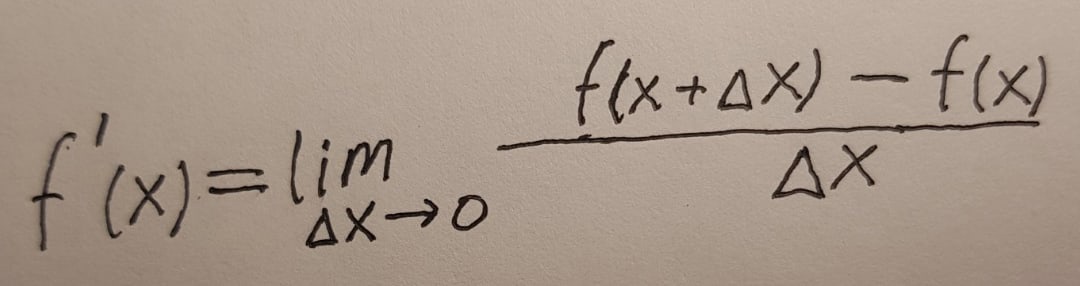 f'(x) = lim Δx→0 f(x+Δx) − f(x) / Δx